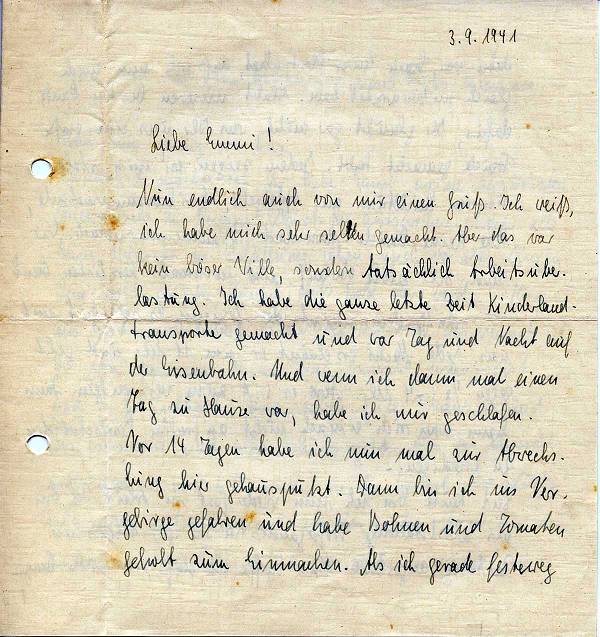 3.9.1941
Liebe Emmi!
Nun endlich auch von mir einen Gruß. Ich weiß,
ich habe mich sehr selten gemacht. Aber das war
kein böser Wille, sondern tatsächlich Arbeitsüber-
lastung. Ich habe die ganze letzte Zeit Kinderland-
transporte gemacht und war Tag und Nacht auf
der Eisenbahn. Und wenn ich dann mal einen
Tag zu Hause war, habe ich nur geschlafen.
Vor 14 Tagen habe ich nun mal zur Abwechs-
lung hier gehausputzt. Dann bin ich ins Vor-
gebirge gefahren und habe Bohnen und Tomaten
geholt zum Einmachen. Als ich gerade feste weg